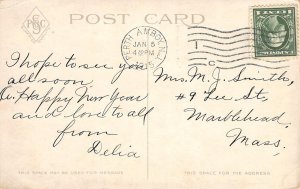 POST CARD
PERTH AMBOY, N.J.
JAN 5
4 PM
1915
I hope to see you
all soon
A. Happy New Year
and love to all
from
Delia
Mrs. M. J. Smiths,
#9 Lee St,
Marblehead,
Mass.
THIS SPACE MAY BE USED FOR MESSAGE
THIS SPACE FOR THE ADDRESS